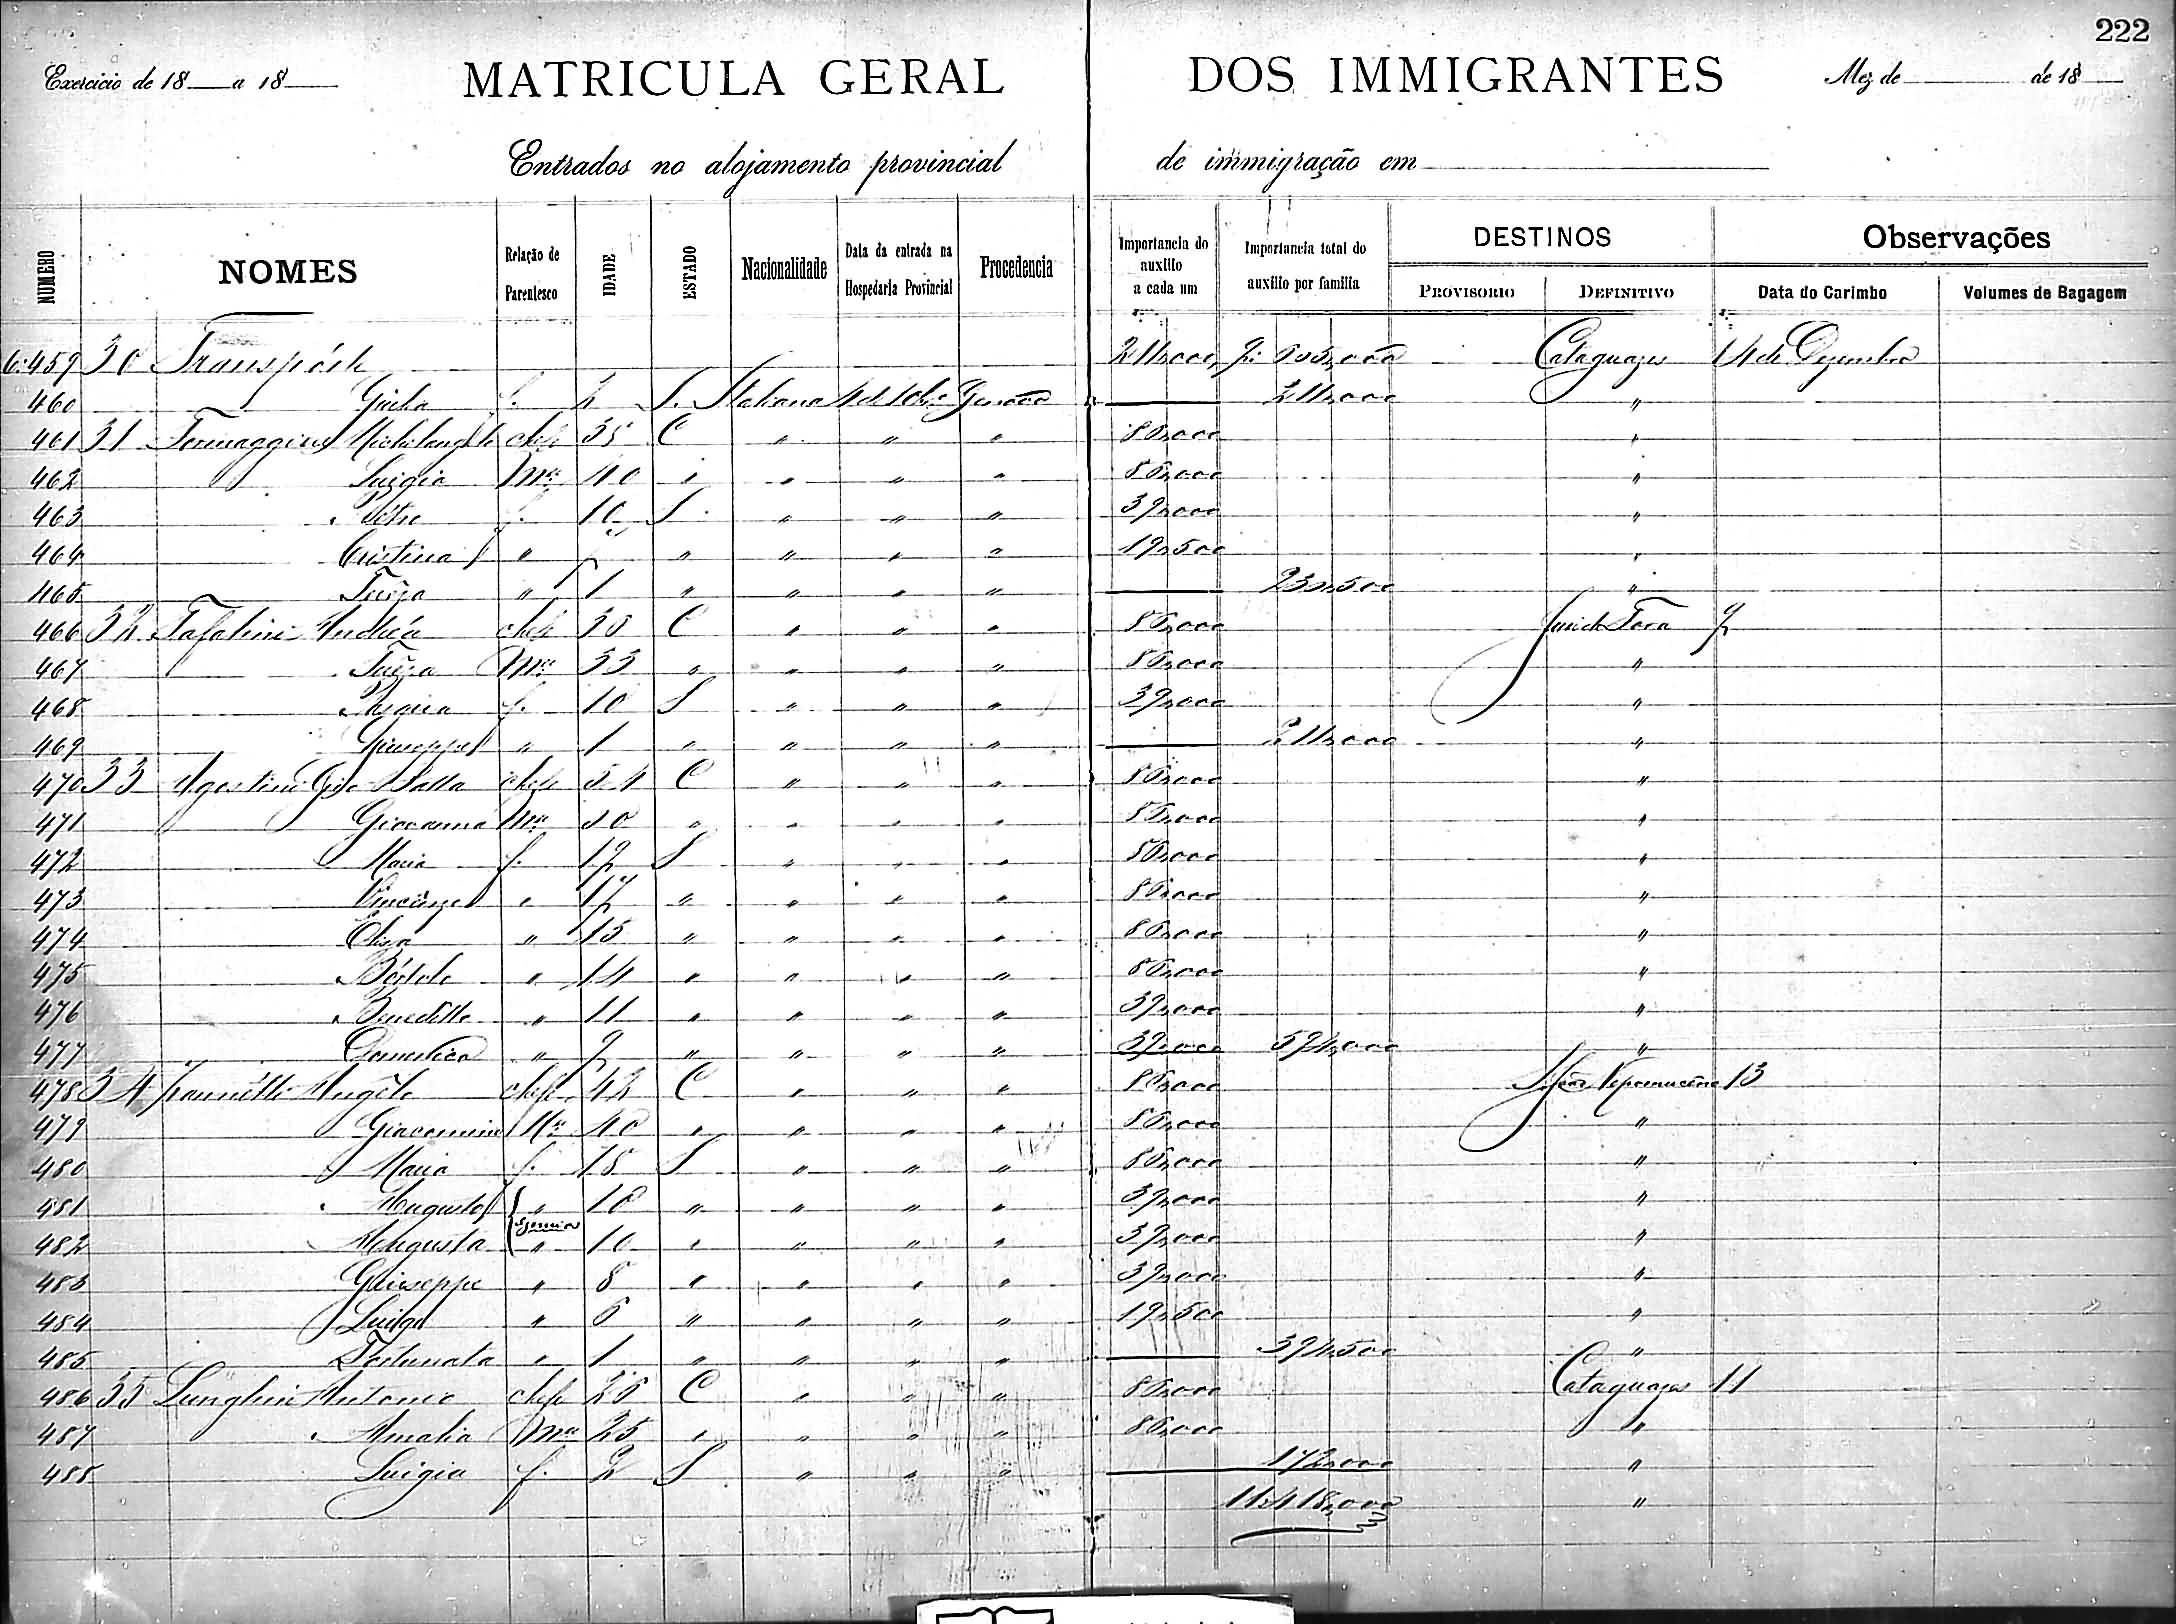 222
Exercicio de 18 a 18 MATRICULA GERAL DOS IMMIGRANTES Mez de de 18
Entrados no alojamento provincial de immigração em
NUMERO NOMES Relação de Parentesco IDADE ESTADO Nacionalidade Data da entrada na Hospedaria Provincial Procedencia Importancia do auxilio a cada um Importancia total do auxilio por familia DESTINOS PROVISORIO DEFINITIVO Observações Data do Carimbo Volumes de Bagagem
6.459 30 Transpórte 211,000 Cataguazes 4 de Dezembro
460 f. 2 S. Italiana Genova 211,000 "
461 31 Michelangelo chefe 35 C " " " 86,000 "
462 Luigia Mer 40 " " " " 86,000 "
463 Pietro f. 10 S " " " 39,000 "
464 Cristina " 7 " " " " 19,500 "
465 " 1 " " " " 230,500 "
466 32 Tafalini Andréa chefe 30 C " " " 86,000 Juiz de Fora 9
467 Mer 33 " " " " 86,000 "
468 f. 10 S " " " 39,000 "
469 Giuseppe " 1 " " " " 211,000 "
470 33 Agostini Gio Batta chefe 54 C " " " 86,000 "
471 Giovanna Mer " " " " 86,000 "
472 Maria f. 19 S " " " 86,000 "
473 Vincenzo " 17 " " " " 86,000 "
474 Elisa " 15 " " " " 86,000 "
475 Bortolo " 14 " " " " 86,000 "
476 Benedetto " 11 " " " " 39,000 "
477 Domenica " 9 " " " " 39,000 594,000 "
478 34 Angelo chefe 42 C " " " 86,000 S. João Nepomuceno 13
479 Giacomina Mer 40 " " " " 86,000 "
480 Maria f. 18 S " " " 86,000 "
481 Augusto " 10 " " " " 39,000 "
gemeos
482 Augusta " 10 " " " " 39,000 "
483 Giuseppe " 8 " " " " 39,000 "
484 Luigi " 6 " " " " 19,500 "
485 Fortunata " 1 " " " " 394,500 "
486 35 Lunghini Antonio chefe 28 C " " " 86,000 Cataguazes 11
487 Amalia Mer 25 " " " " 86,000 "
488 Luigia f. 2 S " " " 172,000 "
11:418,000 "